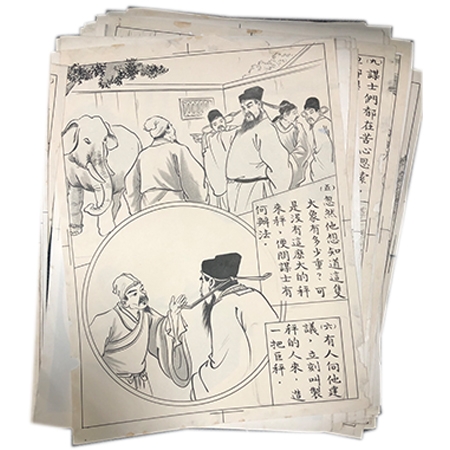 (五)忽然他想知道這隻
大象有多少重?可
是沒有這麼大的秤
來秤,便問謀士有
何辦法.
(六)有人向他建
議,立刻叫製
秤的人來,造
一把巨秤.
九謀士們都在苦心思索,